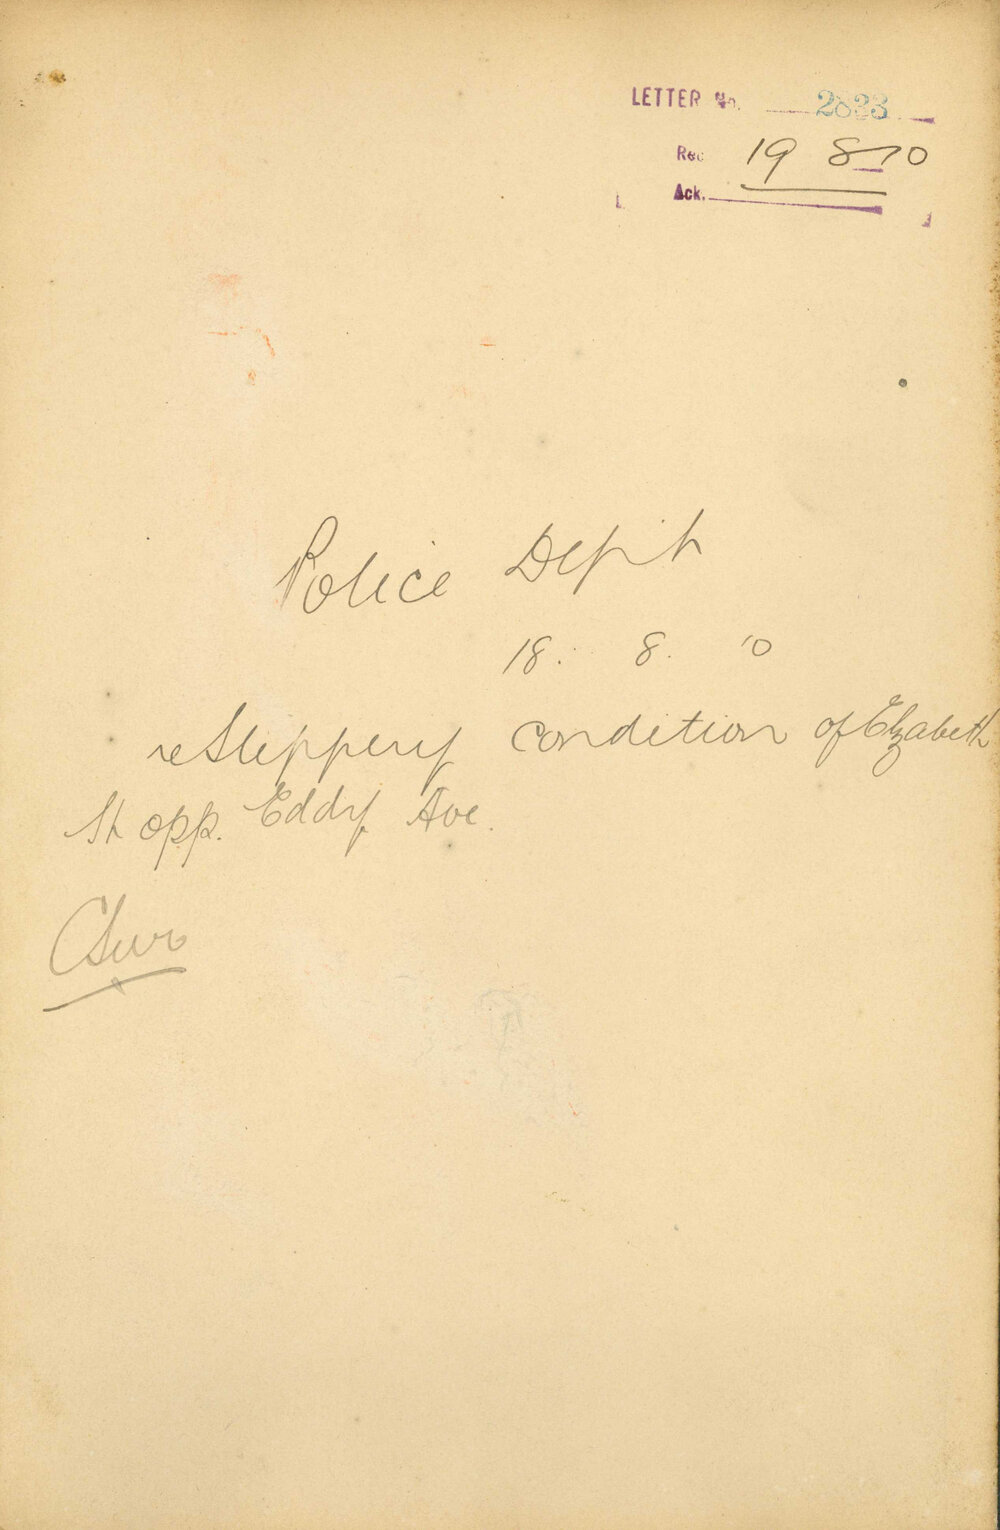 LETTER No. 2833
Rec 19 8 10
Ack.
Police Dept
18. 8. 10
re Slippery condition of Elzabeth
St opp. Eddy Ave.